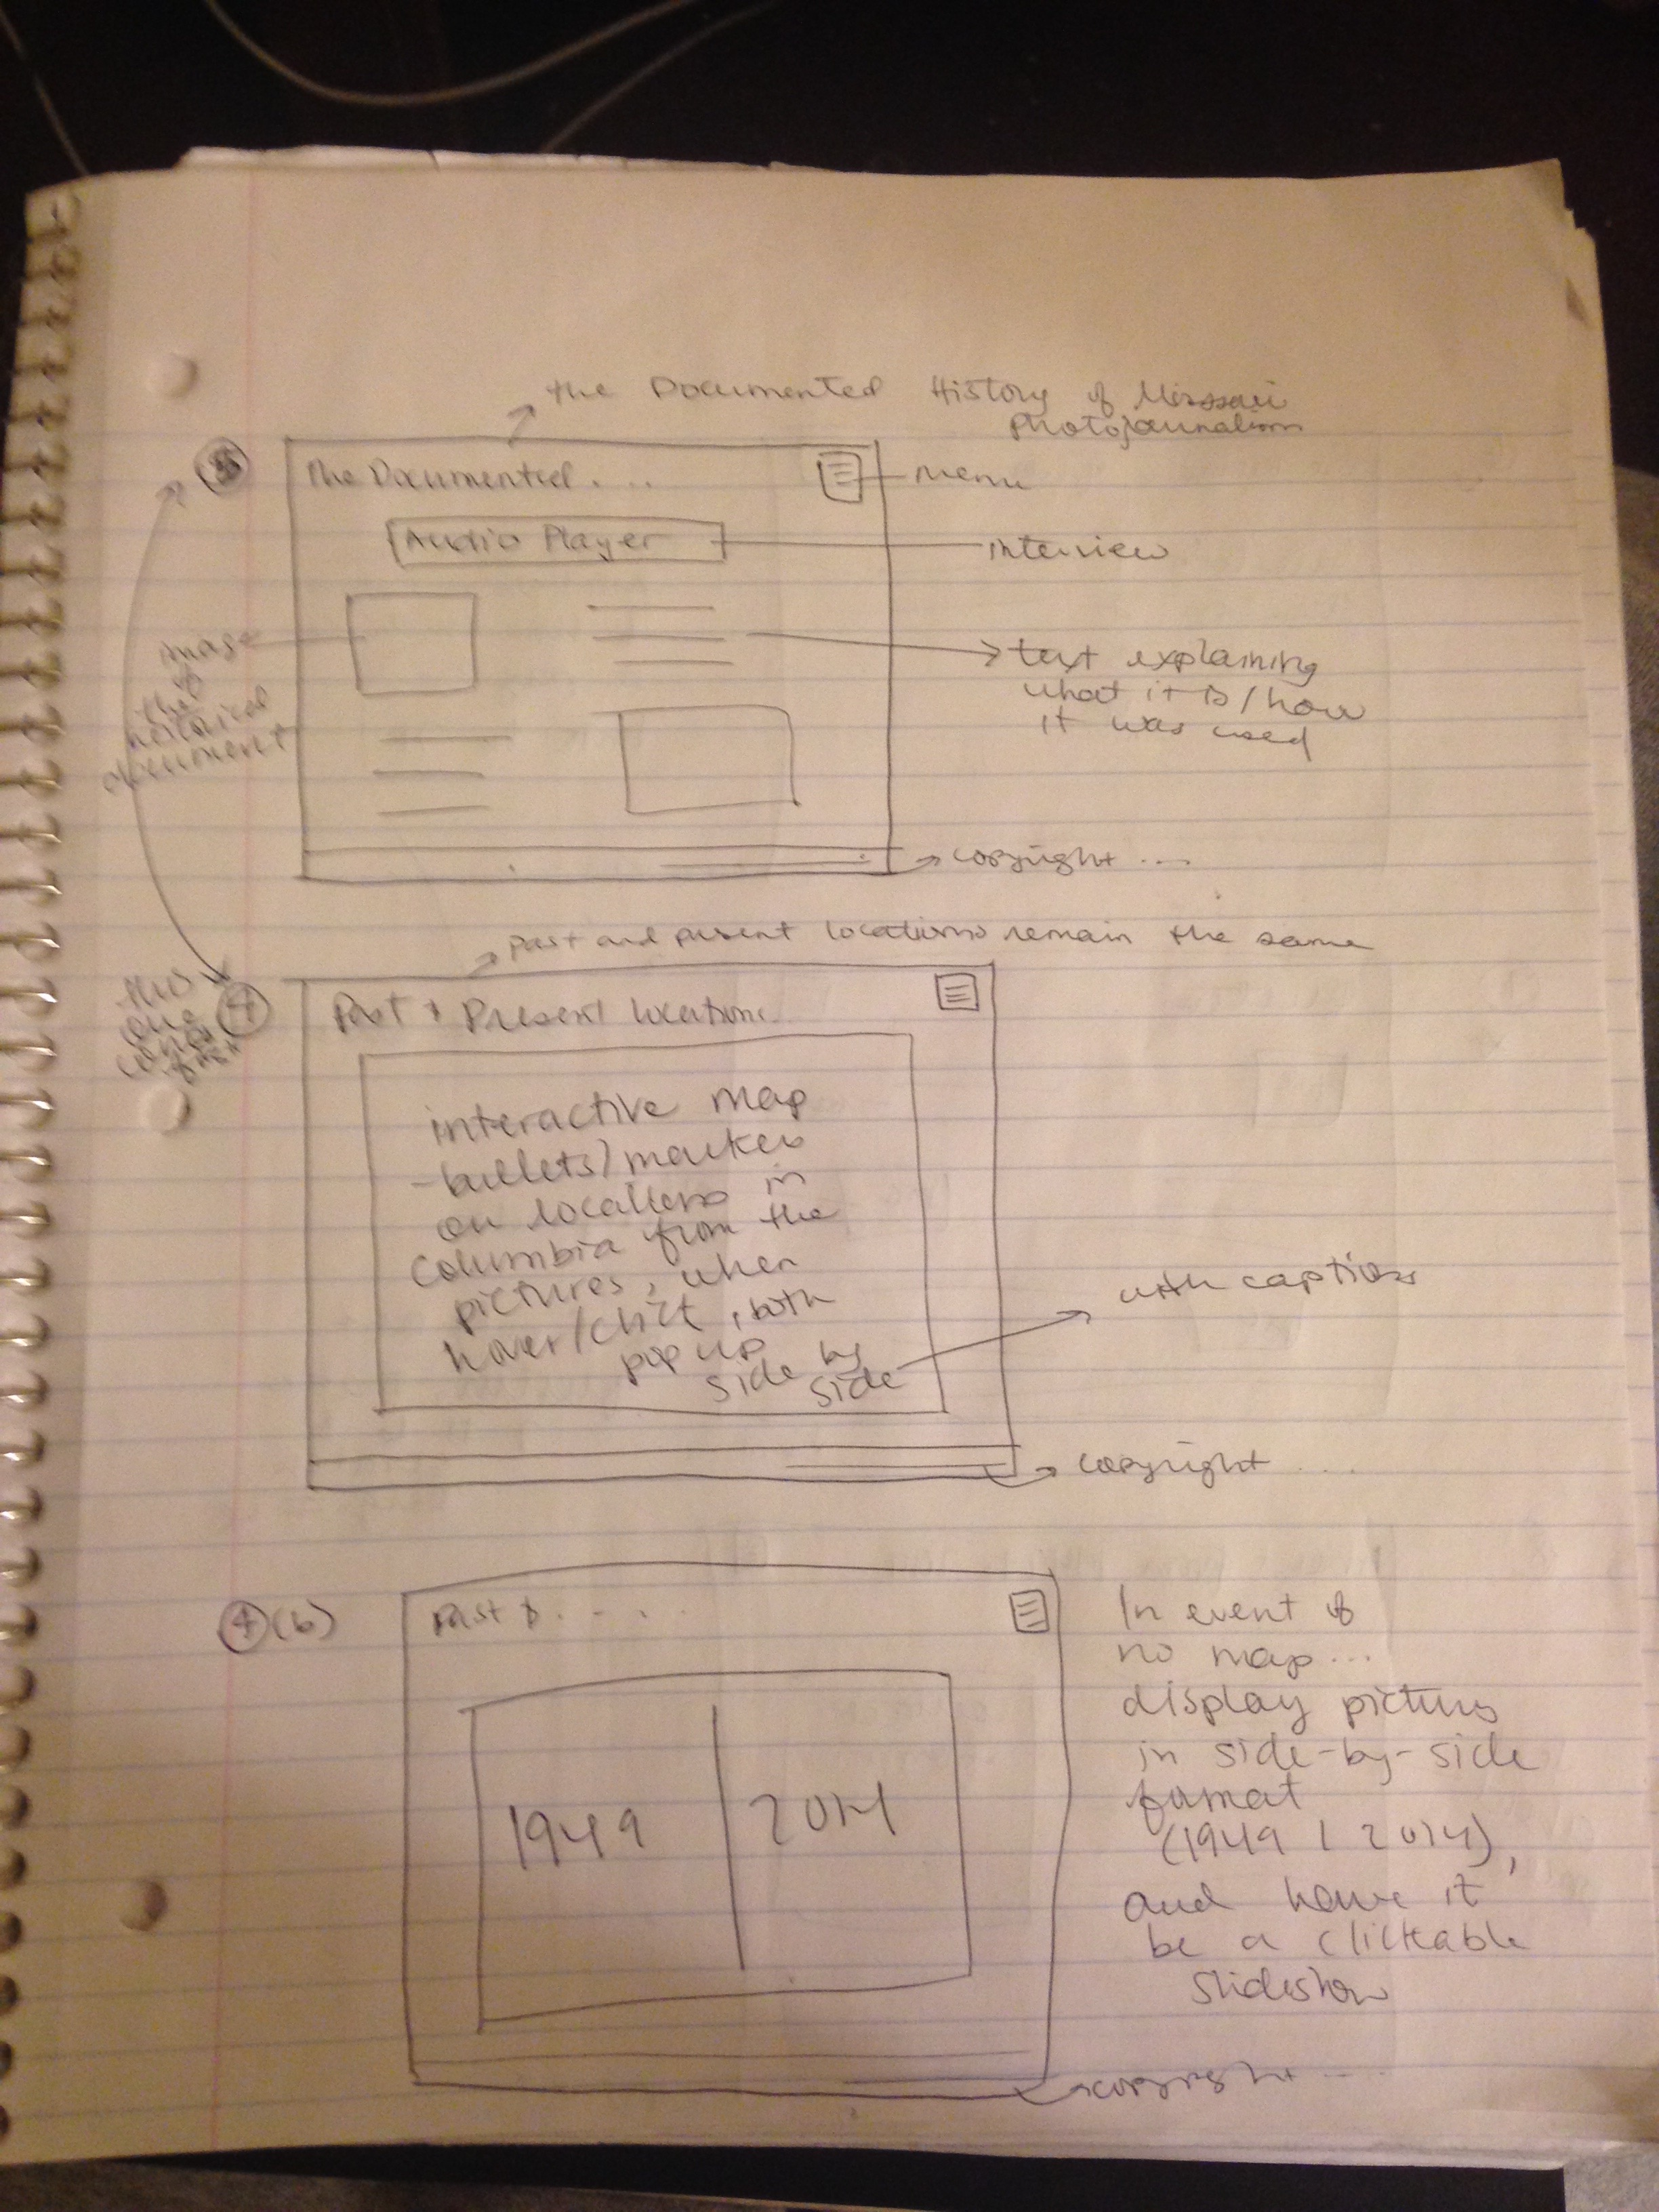 the Documented History of Missouri
Photojournalism
The Documented. . ..
menu
Audio Player
interview
image
of
the
historical
document
text explaining
what it is / how
it was used
copyright ...
past and present locations remain the same
this
one
4
Past & Present locations..
interactive map
- bullets/markers
on locations in
Columbia from the
pictures, when
hover/click, both
pop up
side by
side
with captions
copyright ...
4 (b)
Past & . - .
In event of
no map...
display pictures
in side-by-side
format
(1949 | 2014),
and have it
be a clickable
slideshow
1949
2014
copyright ...